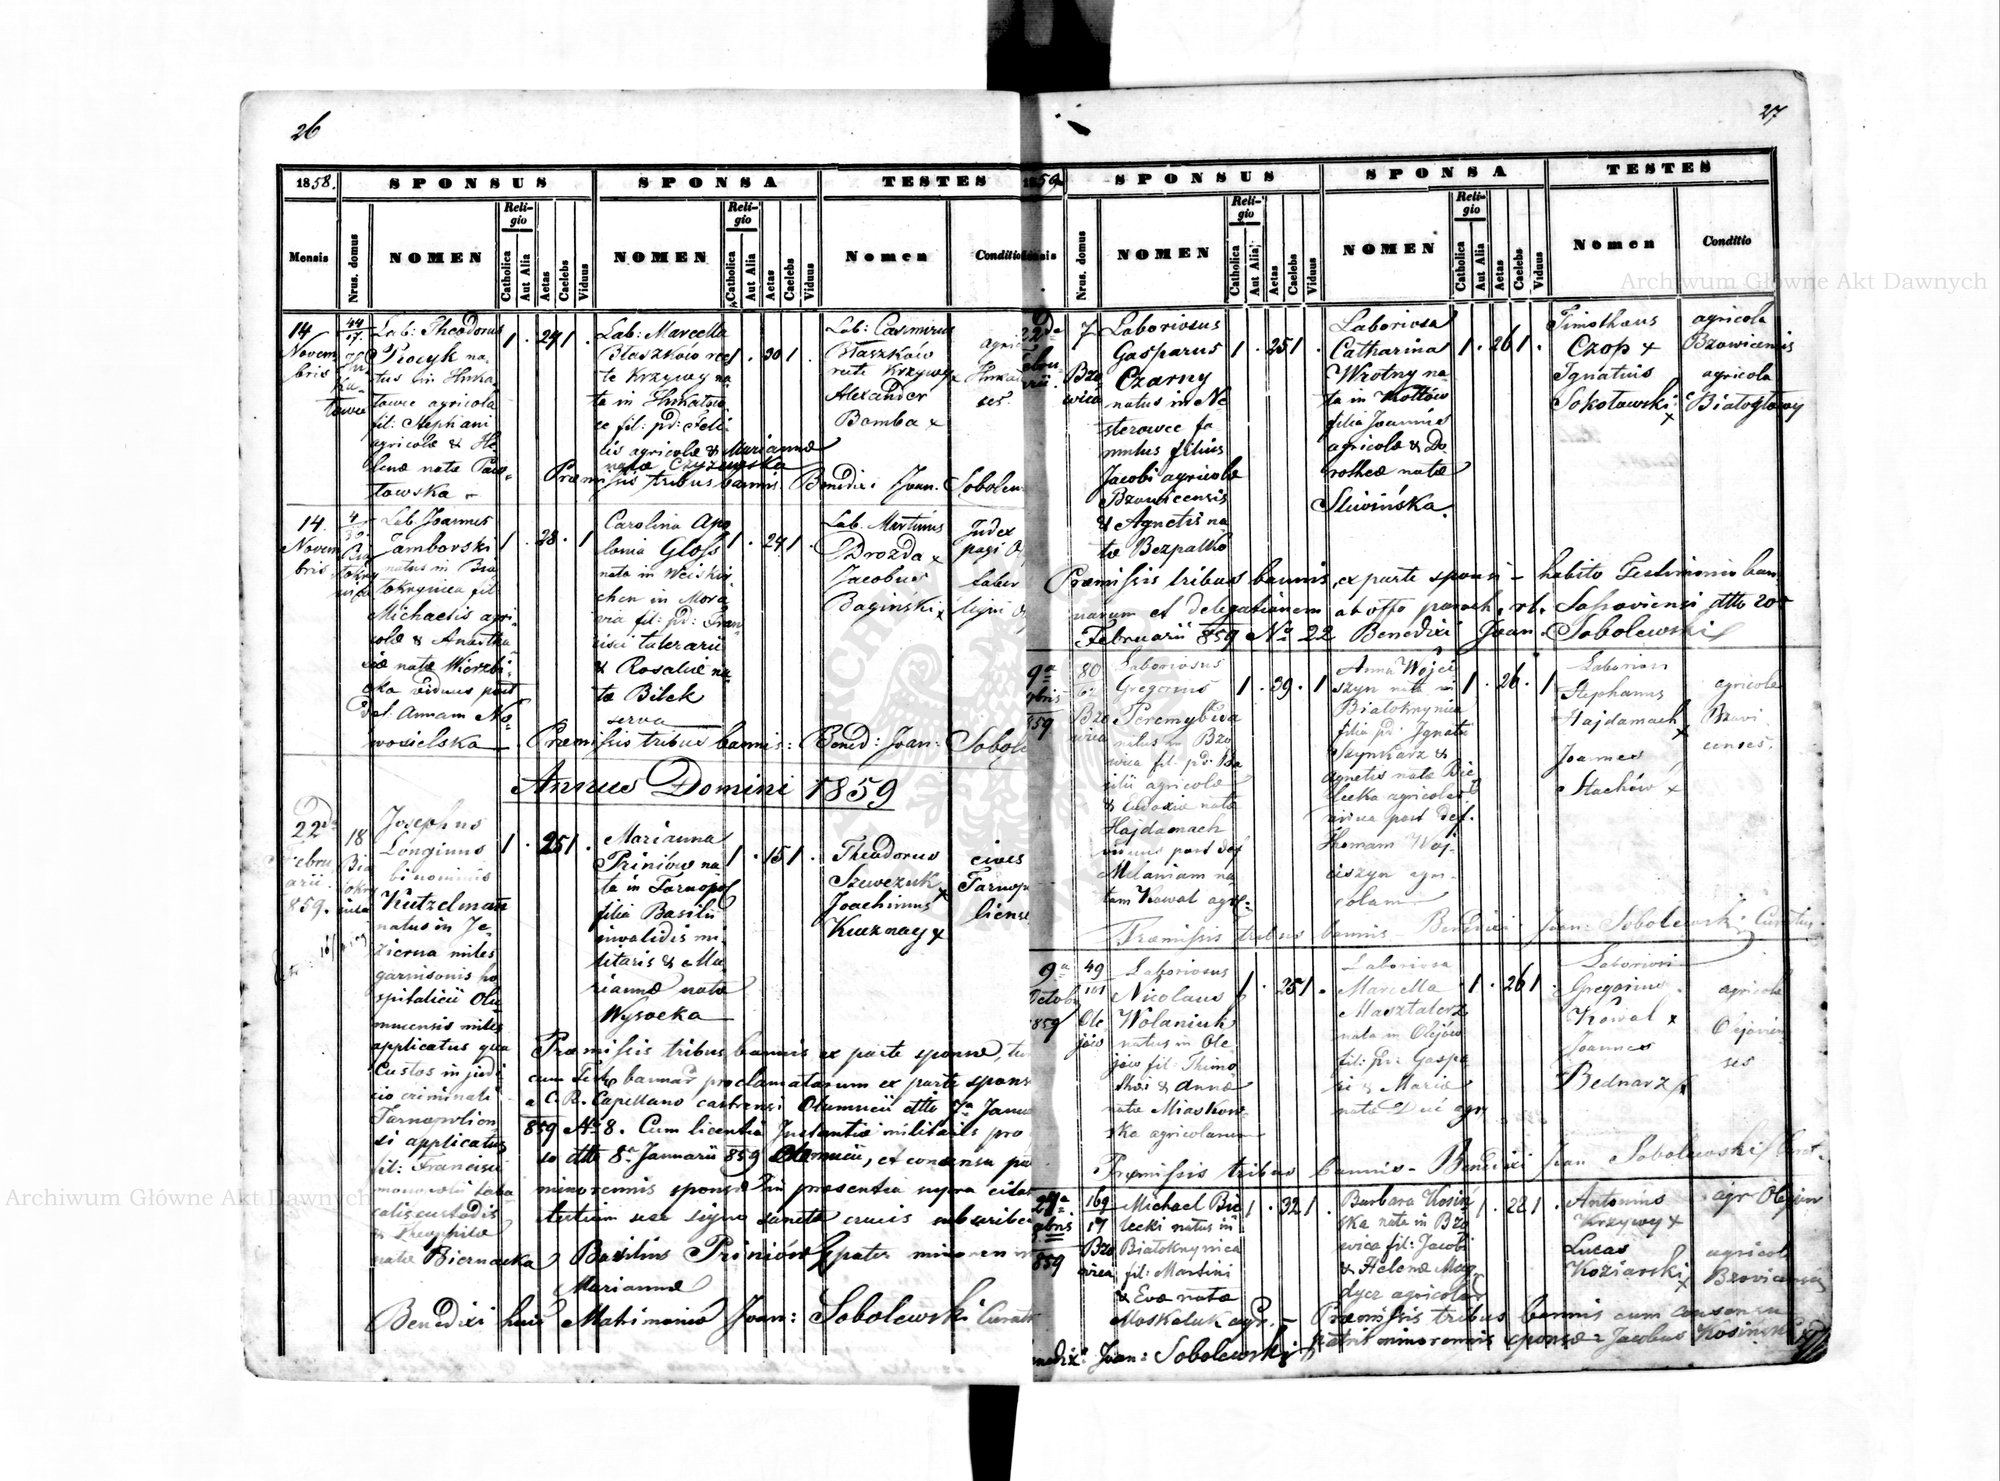 26
1858.
SPONSUS
SPONSA
TESTES
Mensis
Nrus. domus
NOMEN
Religio
Catholica
Aut Alia
Aetas
Caelebs
Viduus
NOMEN
Religio
Catholica
Aut Alia
Aetas
Caelebs
Viduus
Nomen
Conditio
14
Novem
bris
44
Lab: Theodorus
Procyk na
tus in Hnka
towce agricola
fil: Stephani
agricolæ & He
lenæ natæ Paw
łowska
1 . 24 1 .
Lab: Marcella
Błaszków rec
te Krzywy na
ta in Hnkatow
ce fil: pd: Feli
cis agricolæ & Mariannæ
natæ Czyzewska
1 . 30 1
Lab: Casmirus
Błaszków
recte Krzywy x
Alexander
Bomba x
Præmissis tribus bannis. Benedixi Joan. Sobolew
14
Novem
bris
4
Lab. Joannes
Jamborski
natus in Bia
łokrynica fil
Michaelis agri
colæ & Anasta
siæ natæ Wierzbi
cka viduus post
def. Annam No
wosielska
1 . 28 . 1
Carolina Apo
lonia Gloss
nata in Weiskir
chen in Mora
via fil: pd: Fran
cisci talerarii
& Rosaliæ na
tæ Bilek
serva
1 . 24 1 .
Lab. Martinus
Drozda x
Jacobus
Bagiński x
Judex
pagi
faber
ligni
Præmissis tribus bannis: Bened: Joan: Sobol
Annus Domini 1859
22da
Febru
arii
859.
18
Bia
łokry
nica
Josephus
Longinus
binominis
Kutzelman
natus in Je
zierna miles
garnisonis ho
spitalicii Olo
mucensis miles
applicatus qua
Custos in judi
cio criminali
Tarnopolien
si applicatus
fil: Francisci
& Theophilæ
natæ Biernacka
1 . 25 1 .
Marianna
Priniów na
ta in Tarnopol
filia Basilii
invalidis mi
litaris & Ma
riannæ natæ
Wysocka
1 . 15 1 .
Theodorus
Szewczuk x
Joachimus
Kucznay x
cives
Tarnopo
liense
Præmissis tribus bannis ex parte sponsæ, tu
cum Testo bannar proclamatarum ex parte spons
a C. R. Capellano castrensi Olumucii dtto 7a Janua
859 No 8. Cum licentia Instantiæ militaris pro
so dtto 8a Januarii 859 Olomucii, et consensu pa
minorennis sponsæ in præsentia supra citat
testium suo signo sanctæ crucis subscribe
Basilius Priniów pater minorennis
Mariannæ
Benedixi huic Matrimonio Joan: Sobolewski Curatus
27
1859
SPONSUS
SPONSA
TESTES
Mensis
Nrus. domus
NOMEN
Religio
Catholica
Aut Alia
Aetas
Caelebs
Viduus
NOMEN
Religio
Catholica
Aut Alia
Aetas
Caelebs
Viduus
Nomen
Conditio
22da
7
Bzo
wica
Laboriosus
Gasparus
Czarny
natus in Ne
sterowce fa
mulus filius
Jacobi agricolæ
Bzowicensis
& Agnetis na
tæ Bezpalko
1 . 25 1 .
Laboriosa
Catharina
Wrotny na
ta in Kołtów
filia Joannis
agricolæ & Do
rotheæ natæ
Sliwińska.
1 . 26 1 .
Timotheus
Czop x
Ignatius
Sokołowski x
agricola
Bzowicensis
agricola
Białogłowy
Præmissis tribus bannis ex parte sponsi - habito Testimonio ban
narum et delegationem ab offo paroch. rt. Sassoviensi dtto 20a
Februarii 859 No 22 Benedixi Joan. Sobolewski
9a
859
80
Bzo
wica
Laboriosus
Gregorius
Peremybida
natus in Bzo
wica fil: pd: Ba
silii agricolæ
& Eudoxiæ natæ
Hajdamach
viduus post def
Melaniam na
tam Kowal agr.
1 . 39 . 1
Anna Wojci
szyn nata in
Białokrynica
filia pd: Ignatii
Skynkarz &
Agnetis natæ Bie
lecka agricolar
vidua post def.
Thomam Woj
ciszyn agri
colam
1 . 26 . 1
Laboriosi
Stephanus
Hajdamach x
Joannes
Stachów x
agricolæ
Bzovi
censes.
Præmissis tribus bannis - Benedixi Joan: Sobolewski Curatus
9a
Octob
859
49
101
Ole
jów
Laboriosus
Nicolaus
Wolaniuk
natus in Ole
jów fil: Thimo
thei & Annæ
natæ Miaskow
ska agricolarum
1 . 25 1 .
Laboriosa
Marcella
Masztalerz
nata in Olejów
fil: pd: Gaspa
ri & Mariæ
natæ Duć agr
1 . 26 1 .
Laboriosi
Gregorius
Kowal x
Joannes
Bednarz x
agricolæ
Olejovien
ses
Præmissis tribus bannis - Benedixi Joan Sobolewski Curat.
859
169
17
Bzo
wica
Michael Bie
lecki natus in
Białokrynica
fil: Martini
& Evæ natæ
Moskaluk agr.
1 . 32 1 .
Barbara Kosiń
ska nata in Bzo
wica fil: Jacobi
& Helenæ Mag
dycz agricolar
1 . 22 1 .
Antonius
Krzywy x
Lucas
Koziarski x
agr Olejow
agricola
Bzovicensis
Præmissis tribus bannis cum consensu
patris minorennis sponsæ - Jacobus Kosiński
Benedixi Joan: Sobolewski
Archiwum Główne Akt Dawnych
Archiwum Główne Akt Dawnych